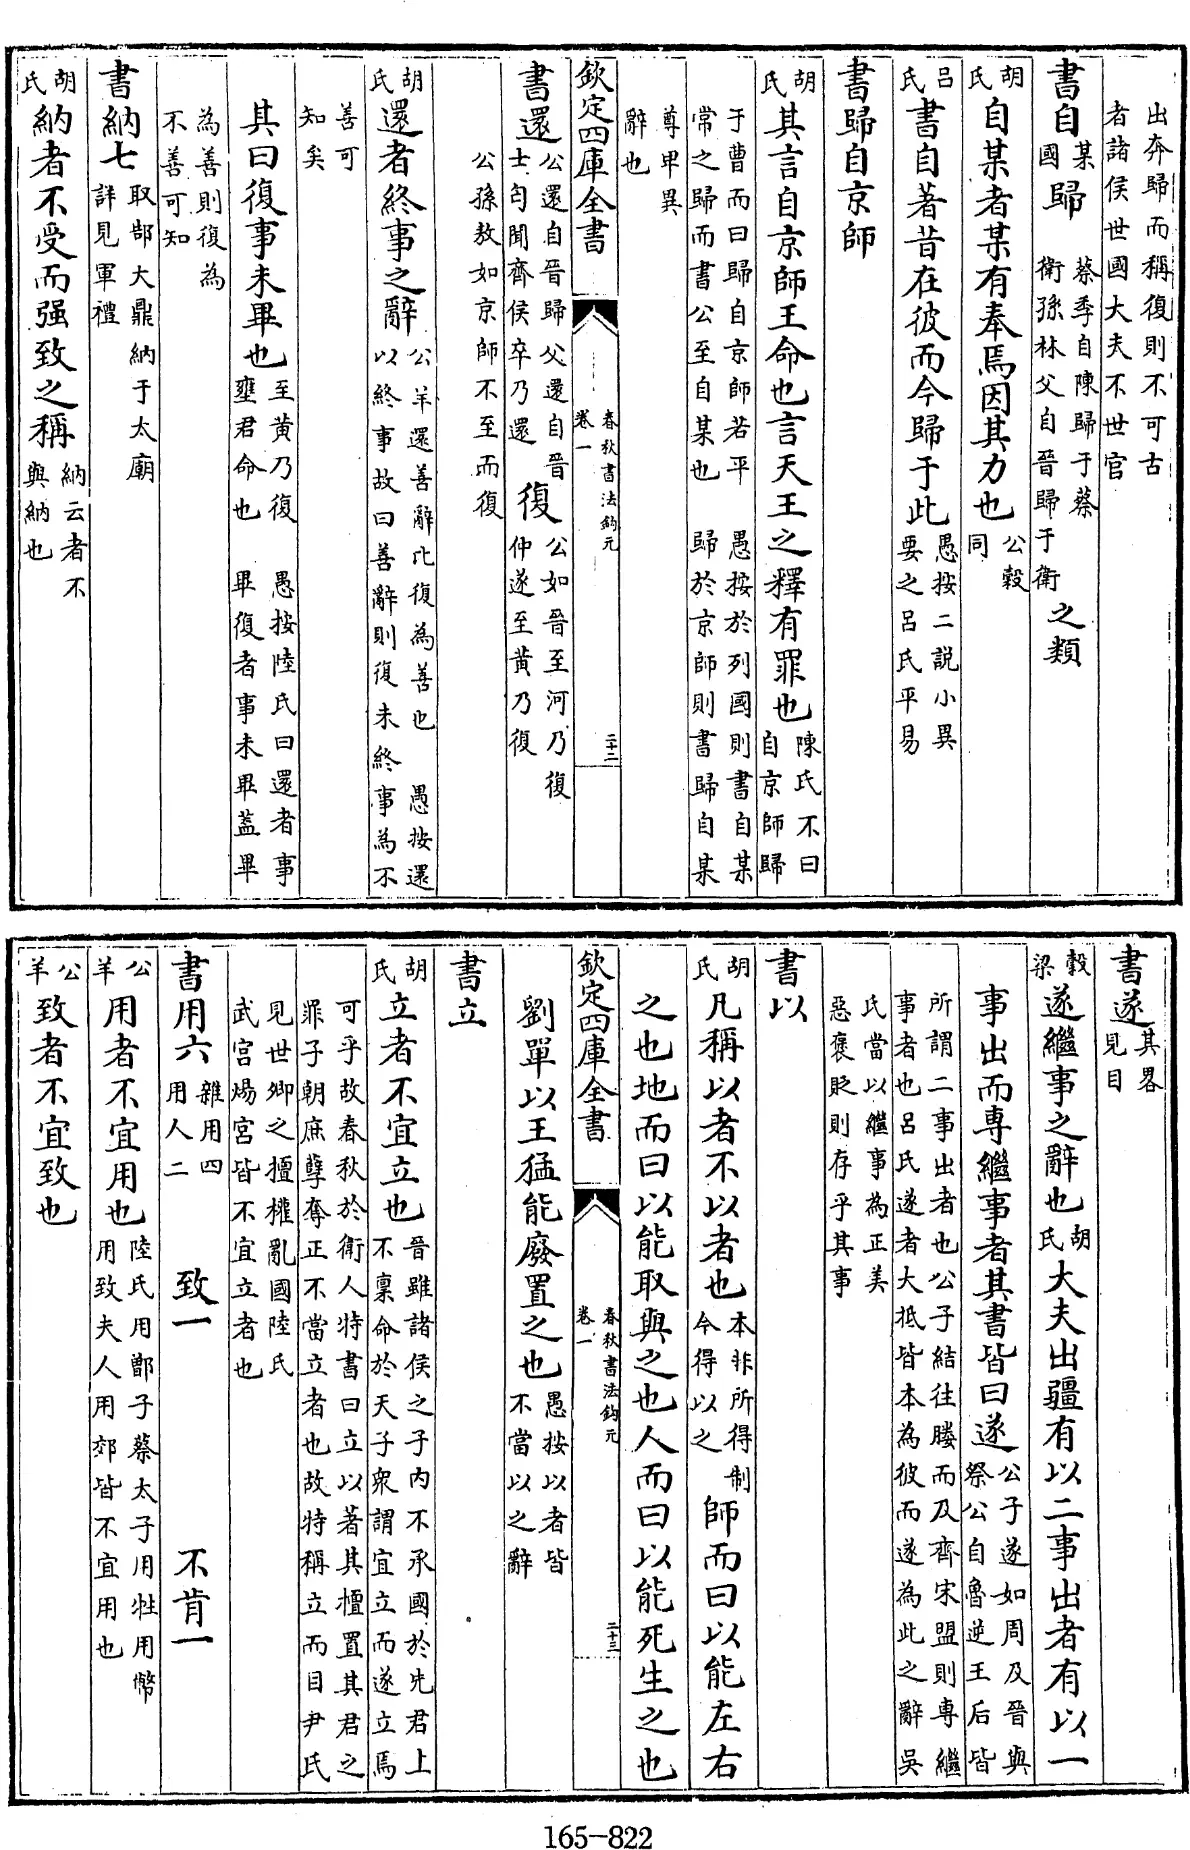 出奔歸而稱復則不可古
者諸侯世國大夫不世官
書自某國歸蔡季自陳歸于蔡衛孫林父自晉歸于衛之類
胡氏自某者某有奉焉因其力也公穀同
呂氏書自著昔在彼而今歸于此愚按二説小異要之呂氏平易
書歸自京師
胡氏其言自京師王命也言天王之釋有罪也陳氏不曰自京師歸
于曹而曰歸自京師若平愚按於列國則書自某
常之歸而書公至自某也歸於京師則書歸自某
尊卑異
辭也
欽定四庫全書
春秋書法鈎元
卷一
二十二
書還公還自晉歸父還自晉士匄聞齊侯卒乃還復公如晉至河乃復仲遂至黄乃復
公孫敖如京師不至而復
胡氏還者終事之辭公羊還善辭比復為善也愚按還以終事故曰善辭則復未終事為不
善可
知矣
其曰復事未畢也至黄乃復壅君命也愚按陸氏曰還者事畢復者事未畢蓋畢
為善則復為
不善可知
書納七取郜大鼎納于太廟詳見軍禮
胡氏納者不受而强致之稱納云者不與納也
書遂其畧見目
穀梁遂繼事之辭也胡氏大夫出疆有以二事出者有以一
事出而専繼事者其書皆曰遂公子遂如周及晉與祭公自魯逆王后皆
所謂二事出者也公子結往媵而及齊宋盟則専繼
事者也呂氏遂者大抵皆本為彼而遂為此之辭吳
氏當以繼事為正美
惡褒貶則存乎其事
書以
胡氏凡稱以者不以者也本非所得制今得以之師而曰以能左右
之也地而曰以能取與之也人而曰以能死生之也
欽定四庫全書
春秋書法鈎元
卷一
二十三
劉單以王猛能廢置之也愚按以者皆不當以之辭
書立
胡氏立者不宜立也晉雖諸侯之子内不承國於先君上不稟命於天子衆謂宜立而遂立焉
可乎故春秋於衛人特書曰立以著其擅置其君之
罪子朝庶孽奪正不當立者也故特稱立而目尹氏
見世卿之擅權亂國陸氏
武宫煬宫皆不宜立者也
書用六雜用四用人二致一不肯一
公羊用者不宜用也陸氏用鄫子蔡太子用牲用幣用致夫人用郊皆不宜用也
公羊致者不宜致也
165-822